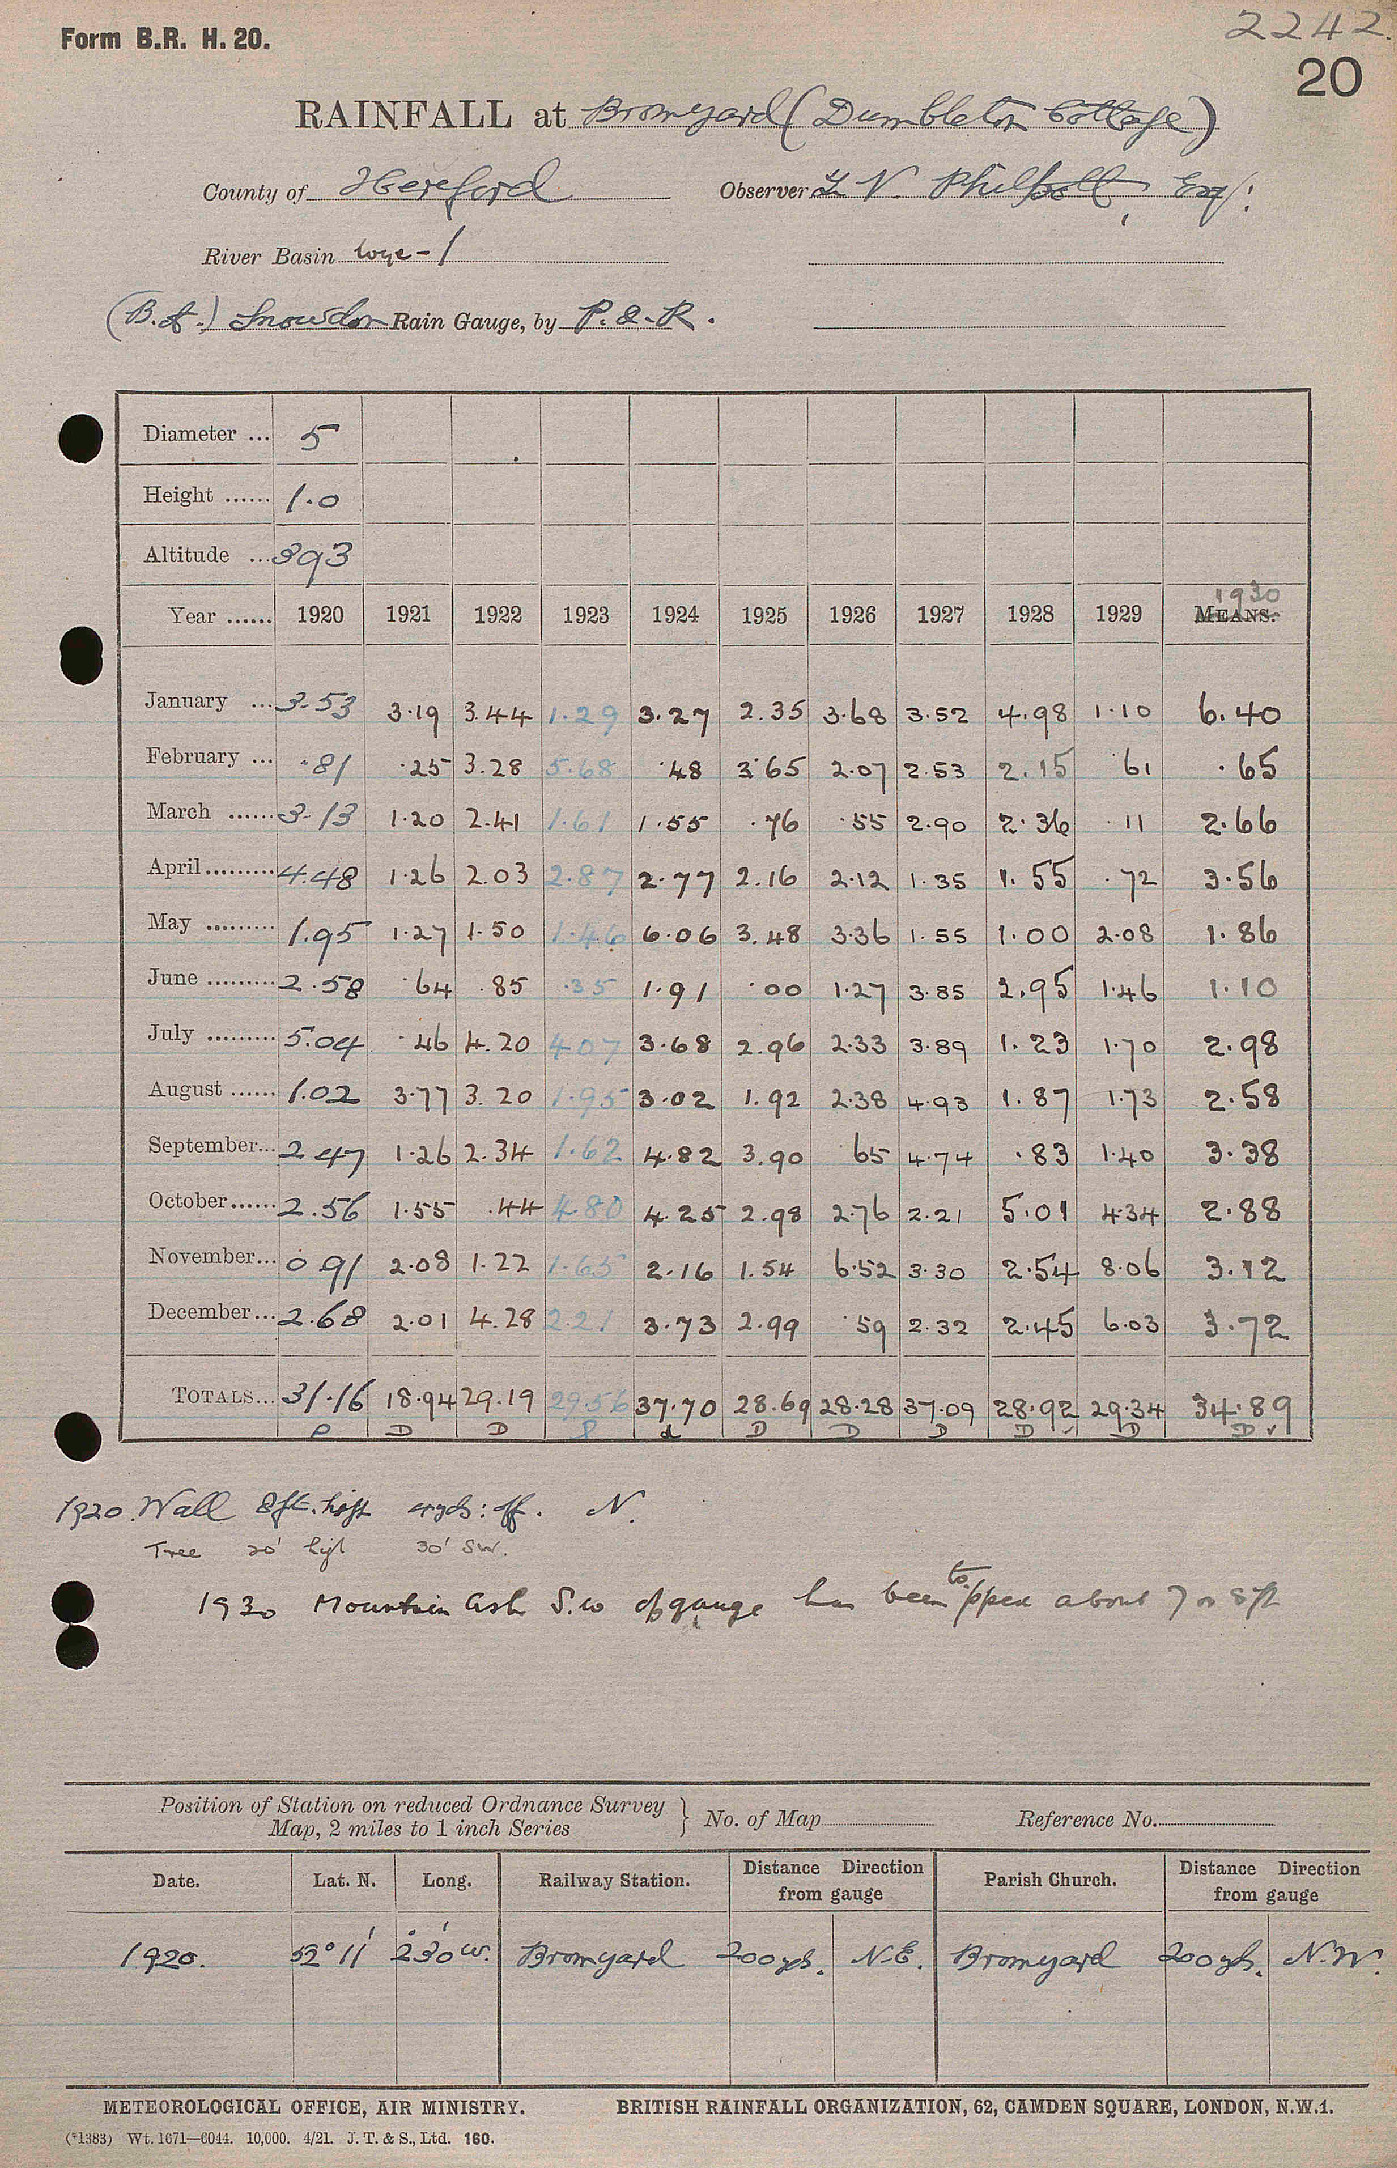 Form B.R. H. 20.
2242.
20
RAINFALL at Bromyard (Dumbleton Cottage)
County of Hereford Observer N. Philpott, Esq:
River Basin Wye-1
(B.A.) Snowdon Rain Gauge, by P. & R.
Diameter ... 5
Height ...... 1.0
Altitude ... 393
1930
Year ...... 1920 1921 1922 1923 1924 1925 1926 1927 1928 1929 MEANS.
January ... 3.53 3.19 3.44 1.29 3.27 2.35 3.68 3.52 4.98 1.10 6.40
February ... .81 .25 3.28 5.68 .48 3.65 2.07 2.53 2.15 .61 .65
March ...... 3.13 1.20 2.41 1.61 1.55 .76 .55 2.90 2.36 .11 2.66
April ......... 4.48 1.26 2.03 2.87 2.77 2.16 2.12 1.35 1.55 .72 3.56
May ......... 1.95 1.27 1.50 1.46 6.06 3.48 3.36 1.55 1.00 2.08 1.86
June ......... 2.58 .64 .85 .35 1.91 .00 1.27 3.85 2.95 1.46 1.10
July ......... 5.04 .46 4.20 4.07 3.68 2.96 2.33 3.89 1.23 1.70 2.98
August ...... 1.02 3.77 3.20 1.95 3.02 1.92 2.38 4.93 1.87 1.73 2.58
September... 2.47 1.26 2.34 1.62 4.82 3.90 .65 4.74 .83 1.40 3.38
October...... 2.56 1.55 .44 4.80 4.25 2.98 2.76 2.21 5.01 4.34 2.88
November... 0.91 2.08 1.22 1.65 2.16 1.54 6.52 3.30 2.54 8.06 3.12
December... 2.68 2.01 4.28 2.21 3.73 2.99 .59 2.32 2.45 6.03 3.72
TOTALS... 31.16 18.94 29.19 29.56 37.70 28.69 28.28 37.09 28.92 29.34 34.89
D D D D D D D
1920. Wall 8ft. high 4yds: off. N.
Tree 20' high 30' SW.
1930 Mountain Ash S.W of gauge has been topped about 7 or 8ft
Position of Station on reduced Ordnance Survey
Map, 2 miles to 1 inch Series } No. of Map Reference No.
Date. Lat. N. Long. Railway Station. Distance Direction from gauge Parish Church. Distance Direction from gauge
1920. 52° 11' 2° 30' W. Bromyard 200 yds. N.E. Bromyard 200 yds. N.W.
METEOROLOGICAL OFFICE, AIR MINISTRY. BRITISH RAINFALL ORGANIZATION, 62, CAMDEN SQUARE, LONDON, N.W.1.
(*1383) Wt. 1671—6044. 10,000. 4/21. J. T. & S., Ltd. 160.